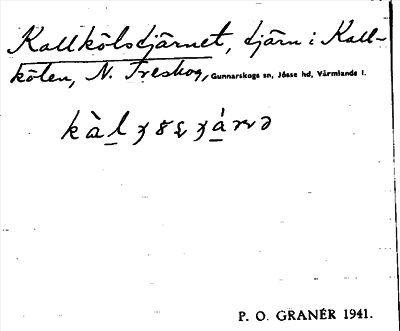 Kallkölsdjärnet, djärn i Kall-
kölen, N. Treskog, Gunnarskogs sn, Jösse hd, Värmlands l.
P. O. GRANÉR 1941.